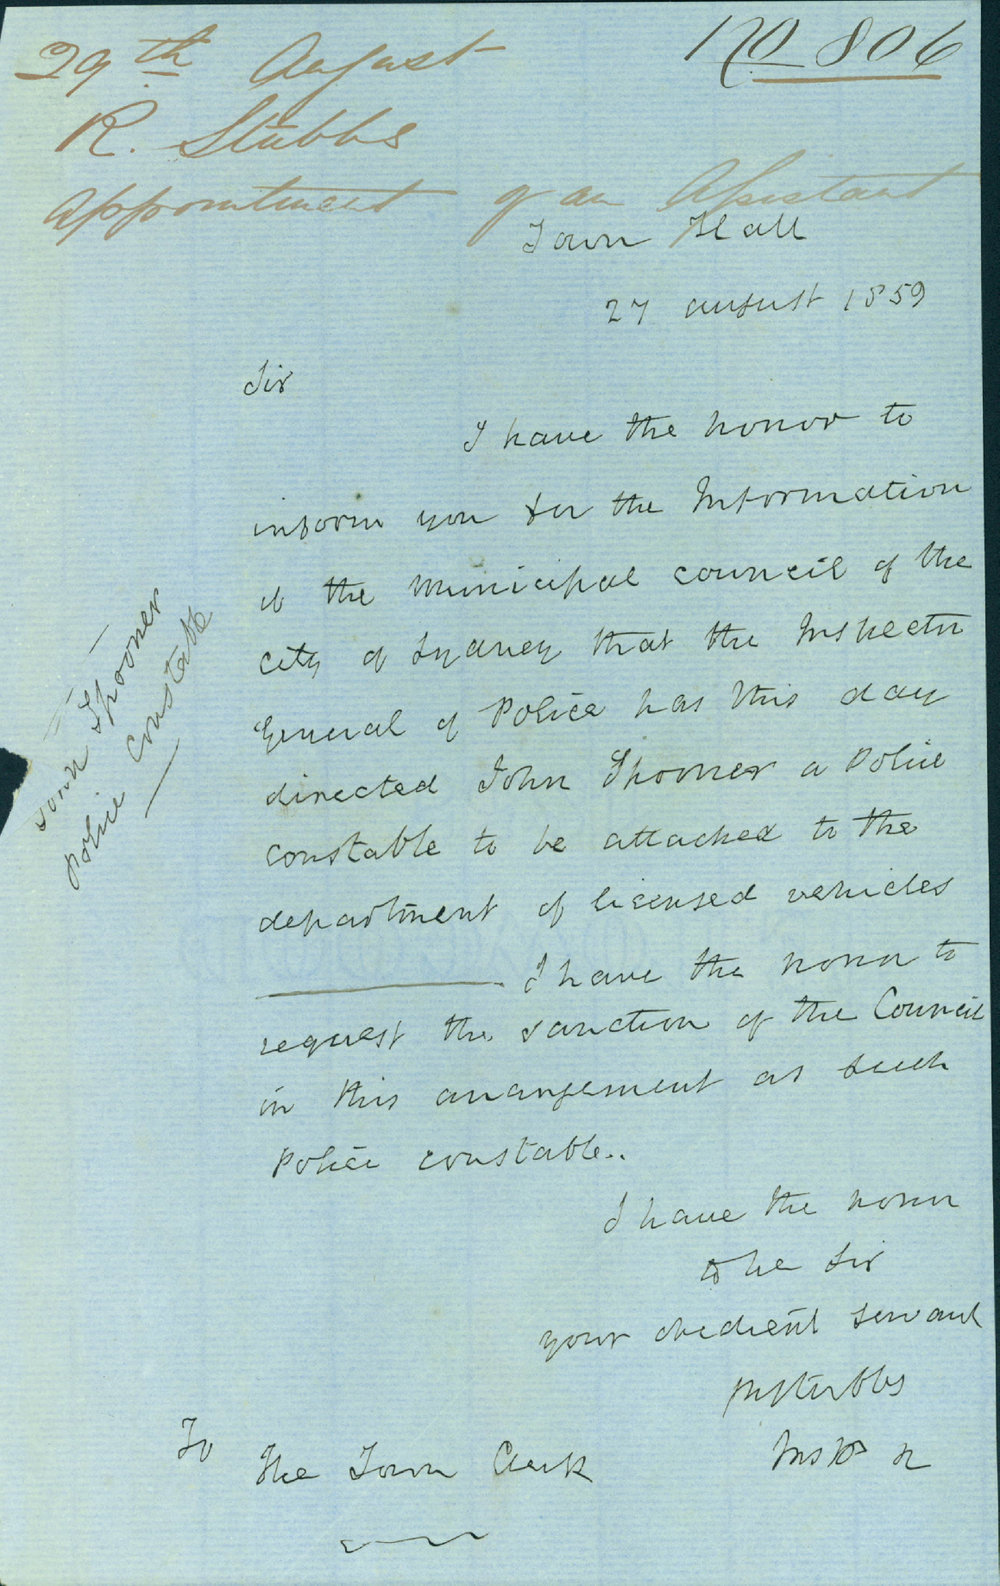 29th August
No 806
R. Stubbs
Appointment of an Assistant
Town Hall
27 august 1859
Sir
I have the honor to
inform you for the Information
of the Municipal council of the
city of Sydney that the Inspector
General of Police has this day
directed John Spooner a Police
constable to be attached to the
department of licensed vehicles
I have the honor to
request the sanction of the Council
in this arrangement as such
Police constable..
I have the honor
to be Sir
your obedient servant
RStubbs
Inspr
To
The Town Clerk
John Spooner
police constable